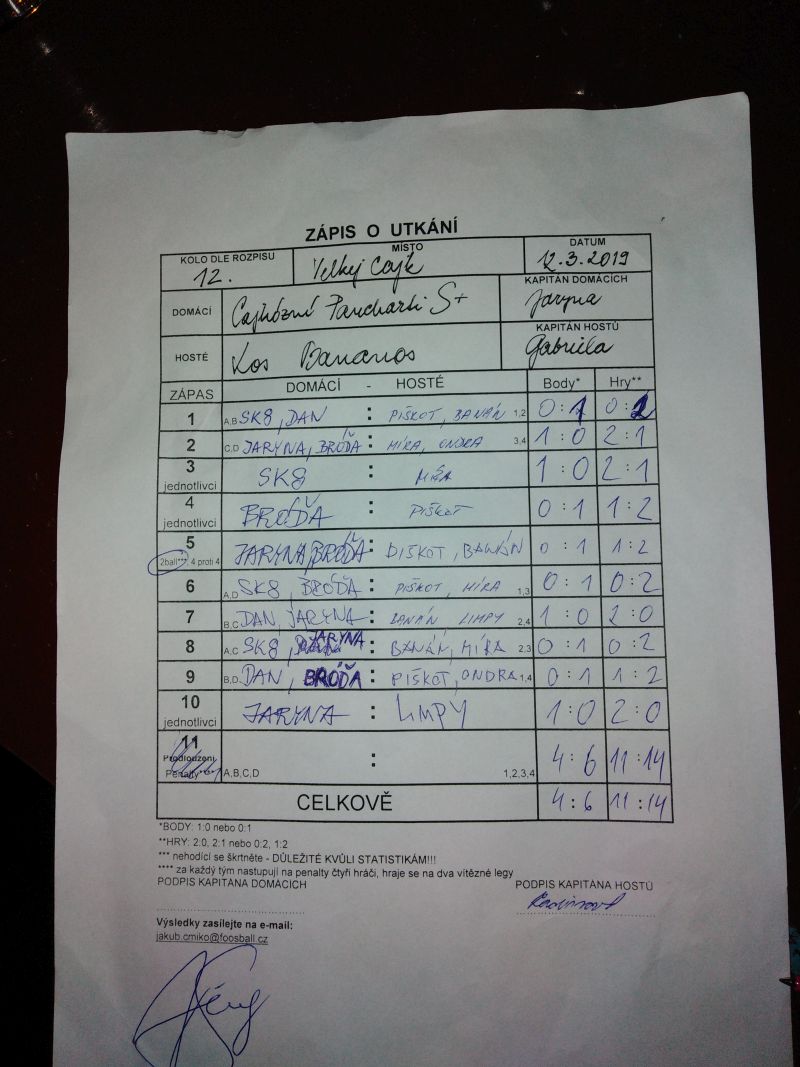 ZÁPIS O UTKÁNÍ
KOLO DLE ROZPISU MÍSTO DATUM
12. Velkej Cajk 12.3.2019
DOMÁCÍ Cajkózní Pancharti S+ KAPITÁN DOMÁCÍCH Jaryna
HOSTÉ Los Bananos KAPITÁN HOSTŮ Gabriela
ZÁPAS DOMÁCÍ - HOSTÉ Body* Hry**
1 A,B SK8, DAN : PIŠKOT, BANÁN 1,2 0:1 0:2
2 C,D JARYNA, BRÓĎA : MÍRA, ONDRA 3,4 1:0 2:1
3 jednotlivci SK8 : MÍŠA 1:0 2:1
4 jednotlivci BRÓĎA : PIŠKOT 0:1 1:2
5 2ball*** 4 proti 4 JARYNA, BRÓĎA : PIŠKOT, BANÁN 0:1 1:2
6 A,D SK8, BRÓĎA : PIŠKOT, MÍRA 1,3 0:1 0:2
7 B,C DAN, JARYNA : BANÁN LIMPY 2,4 1:0 2:0
8 A,C SK8, JARYNA : BANÁN, MÍRA 2,3 0:1 0:2
9 B,D DAN, BRÓĎA : PIŠKOT, ONDRA 1,4 0:1 1:2
10 jednotlivci JARYNA : LIMPY 1:0 2:0
11 Prodloužení Penalty**** A,B,C,D : 1,2,3,4 4:6 11:14
CELKOVĚ 4:6 11:14
*BODY: 1:0 nebo 0:1
**HRY: 2:0, 2:1 nebo 0:2, 1:2
*** nehodící se škrtněte - DŮLEŽITÉ KVŮLI STATISTIKÁM!!!
**** za každý tým nastupují na penalty čtyři hráči, hraje se na dva vítězné legy
PODPIS KAPITÁNA DOMÁCÍCH PODPIS KAPITÁNA HOSTŮ
Výsledky zasílejte na e-mail:
jakub.cmiko@foosball.cz